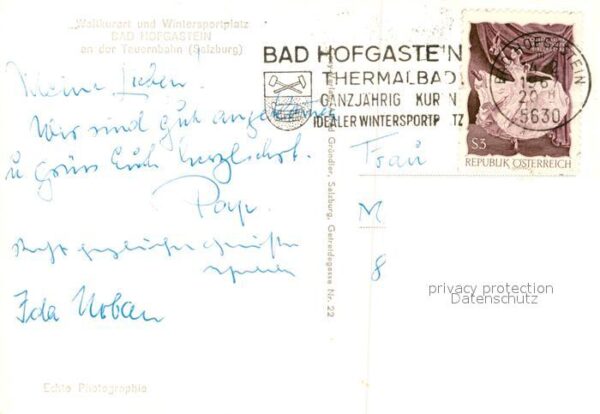 Weltkurort und Wintersportplatz
BAD HOFGASTEIN
an der Tauernbahn (Salzburg)
BAD HOFGASTEIN
THERMALBAD
GANZJÄHRIG KUR N
IDEALER WINTERSPORTP TZ
BAD HOFGASTEIN
5630
S3
REPUBLIK ÖSTERREICH
Meine Lieben!
Wir sind gut angekommen
u grüss Euch herzlichst.
Papa
Ida Urban
Frau
M
8
Gründler, Salzburg, Getreidegasse Nr. 22
privacy protection
Datenschutz
Echte Photographie